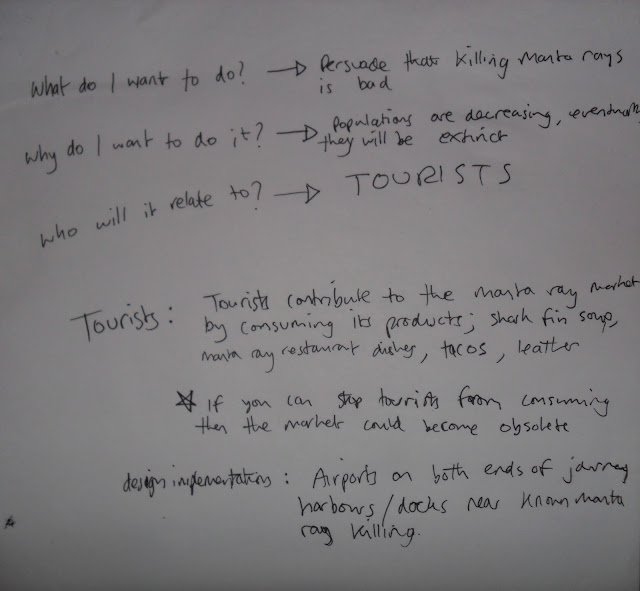 What do I want to do? → Persuade that killing manta rays
is bad
Why do I want to do it? → Populations are decreasing,
they will be extinct
Who will it relate to? → TOURISTS
Tourists: Tourists contribute to the manta ray market
by consuming its products; shark fin soup,
manta ray restaurant dishes, tacos, leather
☆ If you can stop tourists from consuming
then the market could become obsolete
design implementations: Airports on both ends of journey
harbours/docks near known manta
ray killing.